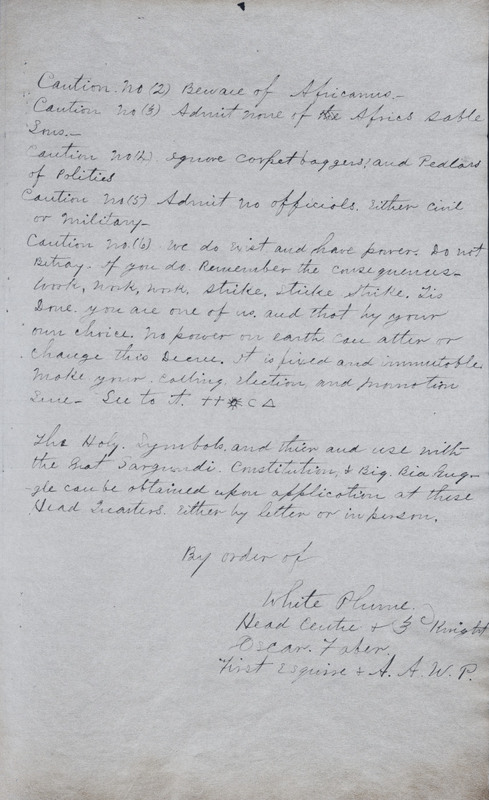 Caution. No (2) Beware of Africanus.—
Caution No (3) Admit none of the Africs Sable
Sons.—
Caution No (4) ignore Carpetbaggers, and Pedlars
of Politics
Caution No (5) Admit no officials. Either Civil
or Military—
Caution No. (6) We do Exist and have powers. Do not
Betray. if you do. Remember the consequences—
Work, Work, Work. Strike. Strike Strike. Tis
Done. you are one of us. and that by your
own choice. No power on earth can alter or
Change this Decree. it is fixed and immutable.
Make your. Calling, Election, and Promotion
Sure— See to it.
The Holy. Symbols. and thier and use with
the Constitution, & Big.
can be obtained upon application at these
Head Quarters. Either by letter or in person.
By order of
White Plume.
Head Centre & 3 Knight
Oscar. Faber.
First Esquire & A. A. W. P.